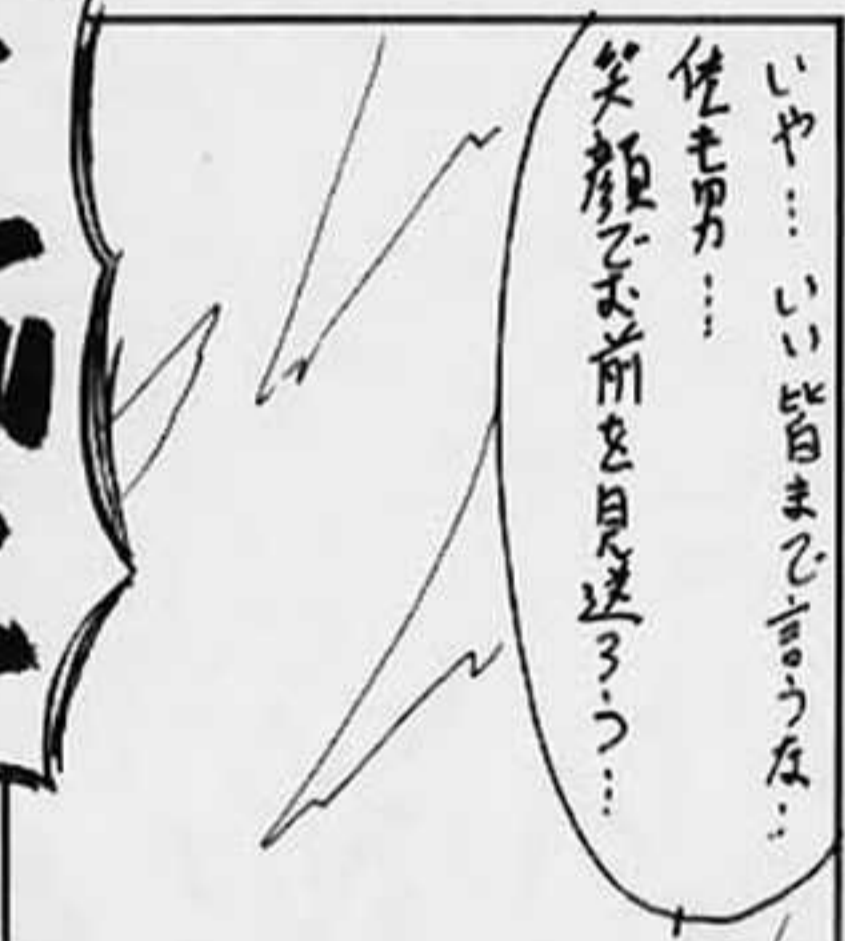 いや…いい皆まで言うな…
俺も男……
笑顔でお前を見送ろう…